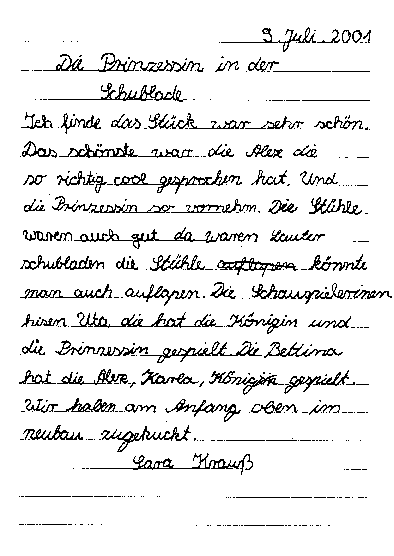 9. Juli. 2001
Die Prinzessin in der
Schublade
Ich finde das Stück war sehr schön.
Das schönste warr die Alex die
so richtig cool gesprochen hat. Und
die Prinzessin so vornehm. Die Stühle
waren auch gut da waren lauter
schubladen die Stühle auflapen könnte
man auch auflapen. Die Schauspielerinen
hisen Uta, die hat die Königin und
die Prinzessin gespielt Die Bettina
hat die Alex, Karla, Königin gespielt.
Wir haben am Anfang oben im
neubau zugekuckt.
Lara Krauß